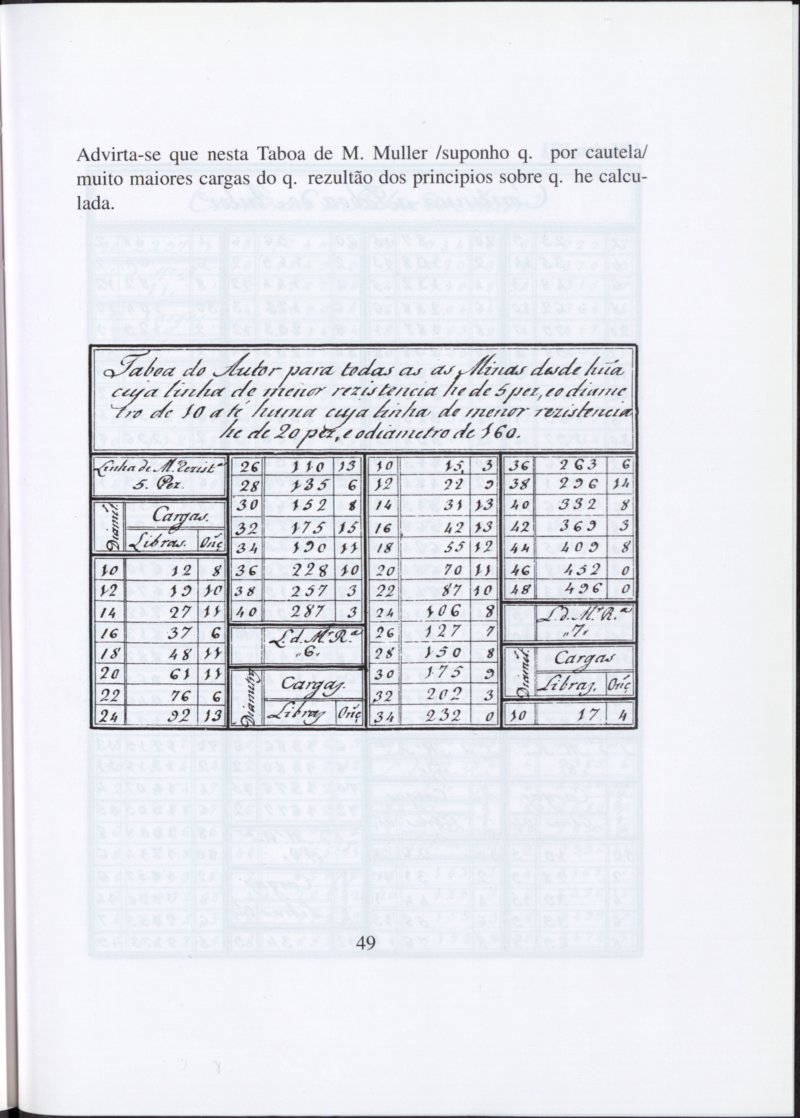 Advirta-se que nesta Taboa de M. Muller /suponho q. por cautela/
muito maiores cargas do q. rezultão dos principios sobre q. he calcu-
lada.
Taboa do Autor para todas as as Minas desde hũa
cuja linha de menor rezistencia he de 5 pez, e o diame
tro de 10 até huma cuja linha de menor rezistencia
he de 20 pez, e o diametro de 160.
Linha de M. Rezist.ª
5. Pez.
Diamit.
Cargas.
Libras. Onç
10 12 8
12 19 10
14 27 11
16 37 6
18 48 11
20 61 11
22 76 6
24 92 13
26 110 13
28 135 6
30 152 8
32 175 15
34 190 11
36 228 10
38 257 3
40 287 3
L. d. M.r R.ª
"6"
Diametro
Cargas.
Libras Onç
10 15 3
12 22 9
14 31 13
16 42 13
18 55 12
20 70 11
22 87 10
24 106 8
26 127 7
28 150 8
30 175 9
32 202 3
34 232 0
36 263 6
38 296 14
40 332 8
42 369 3
44 409 8
46 452 0
48 496 0
L. d. M.r R.ª
"7"
Diamit.
Cargas
Libras. Onç
10 17 4
49